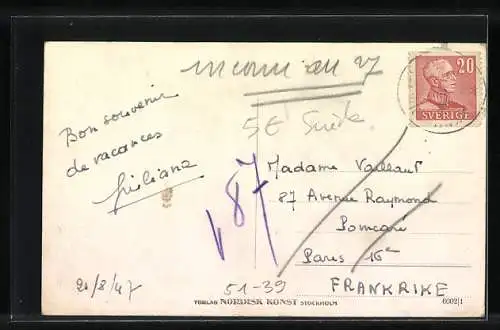 inconnu au 27
20
SVERIGE
5€ Suède
Bon souvenir
de vacances
Giuliana
V 87
Madame Vaillaut
87 Avenue Raymond
Poincaré
Paris 16e
FRANKRIKE
21/8/47
51-39
NORDISK KONST STOCKHOLM
6002/1